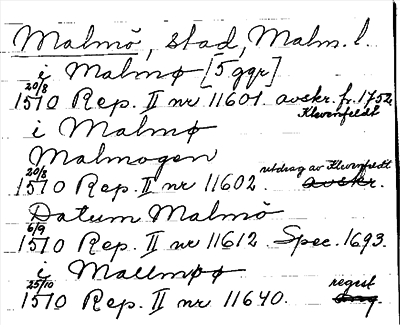 Malmö, stad, Malm. l.
i Malmø [5 ggr]
20/8 1510 Rep. II nr 11601. avskr. fr. 1752 Klevenfeldt
i Malmø
Malmogen
20/8 1510 Rep. II nr 11602. utdrag av Klevenfeldt avskr.
Datum Malmö
6/9 1510 Rep. II nr 11612. Spec. 1693.
i Mallmøø
25/10 1510 Rep. II nr 11640. regest